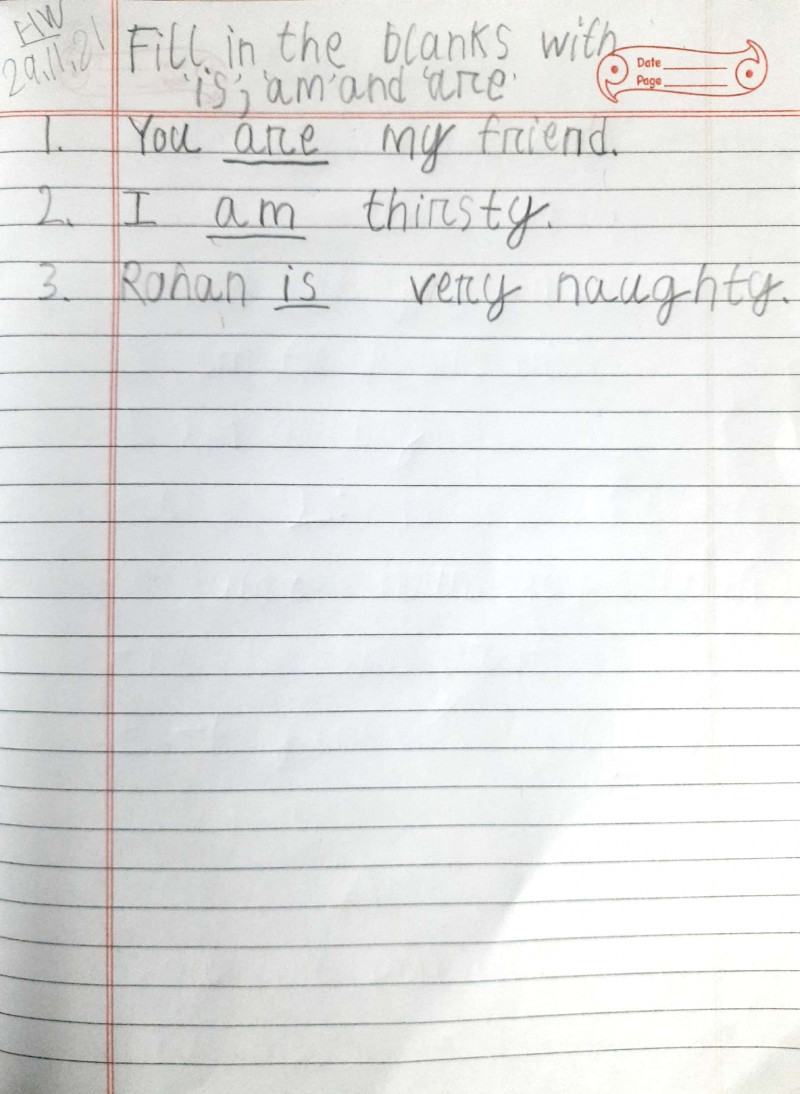 HW
29.11.21
Fill in the blanks with
'is', 'am' and 'are'
Date
Page
1. You are my friend.
2. I am thirsty.
3. Rohan is very naughty.